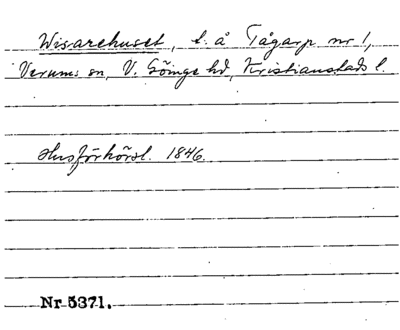 Wisarehuset, l. å Tågarp nr 1,
Verums sn, V. Göinge hd, Kristianstads l.
Husförhörsl. 1846.
Nr 5371.